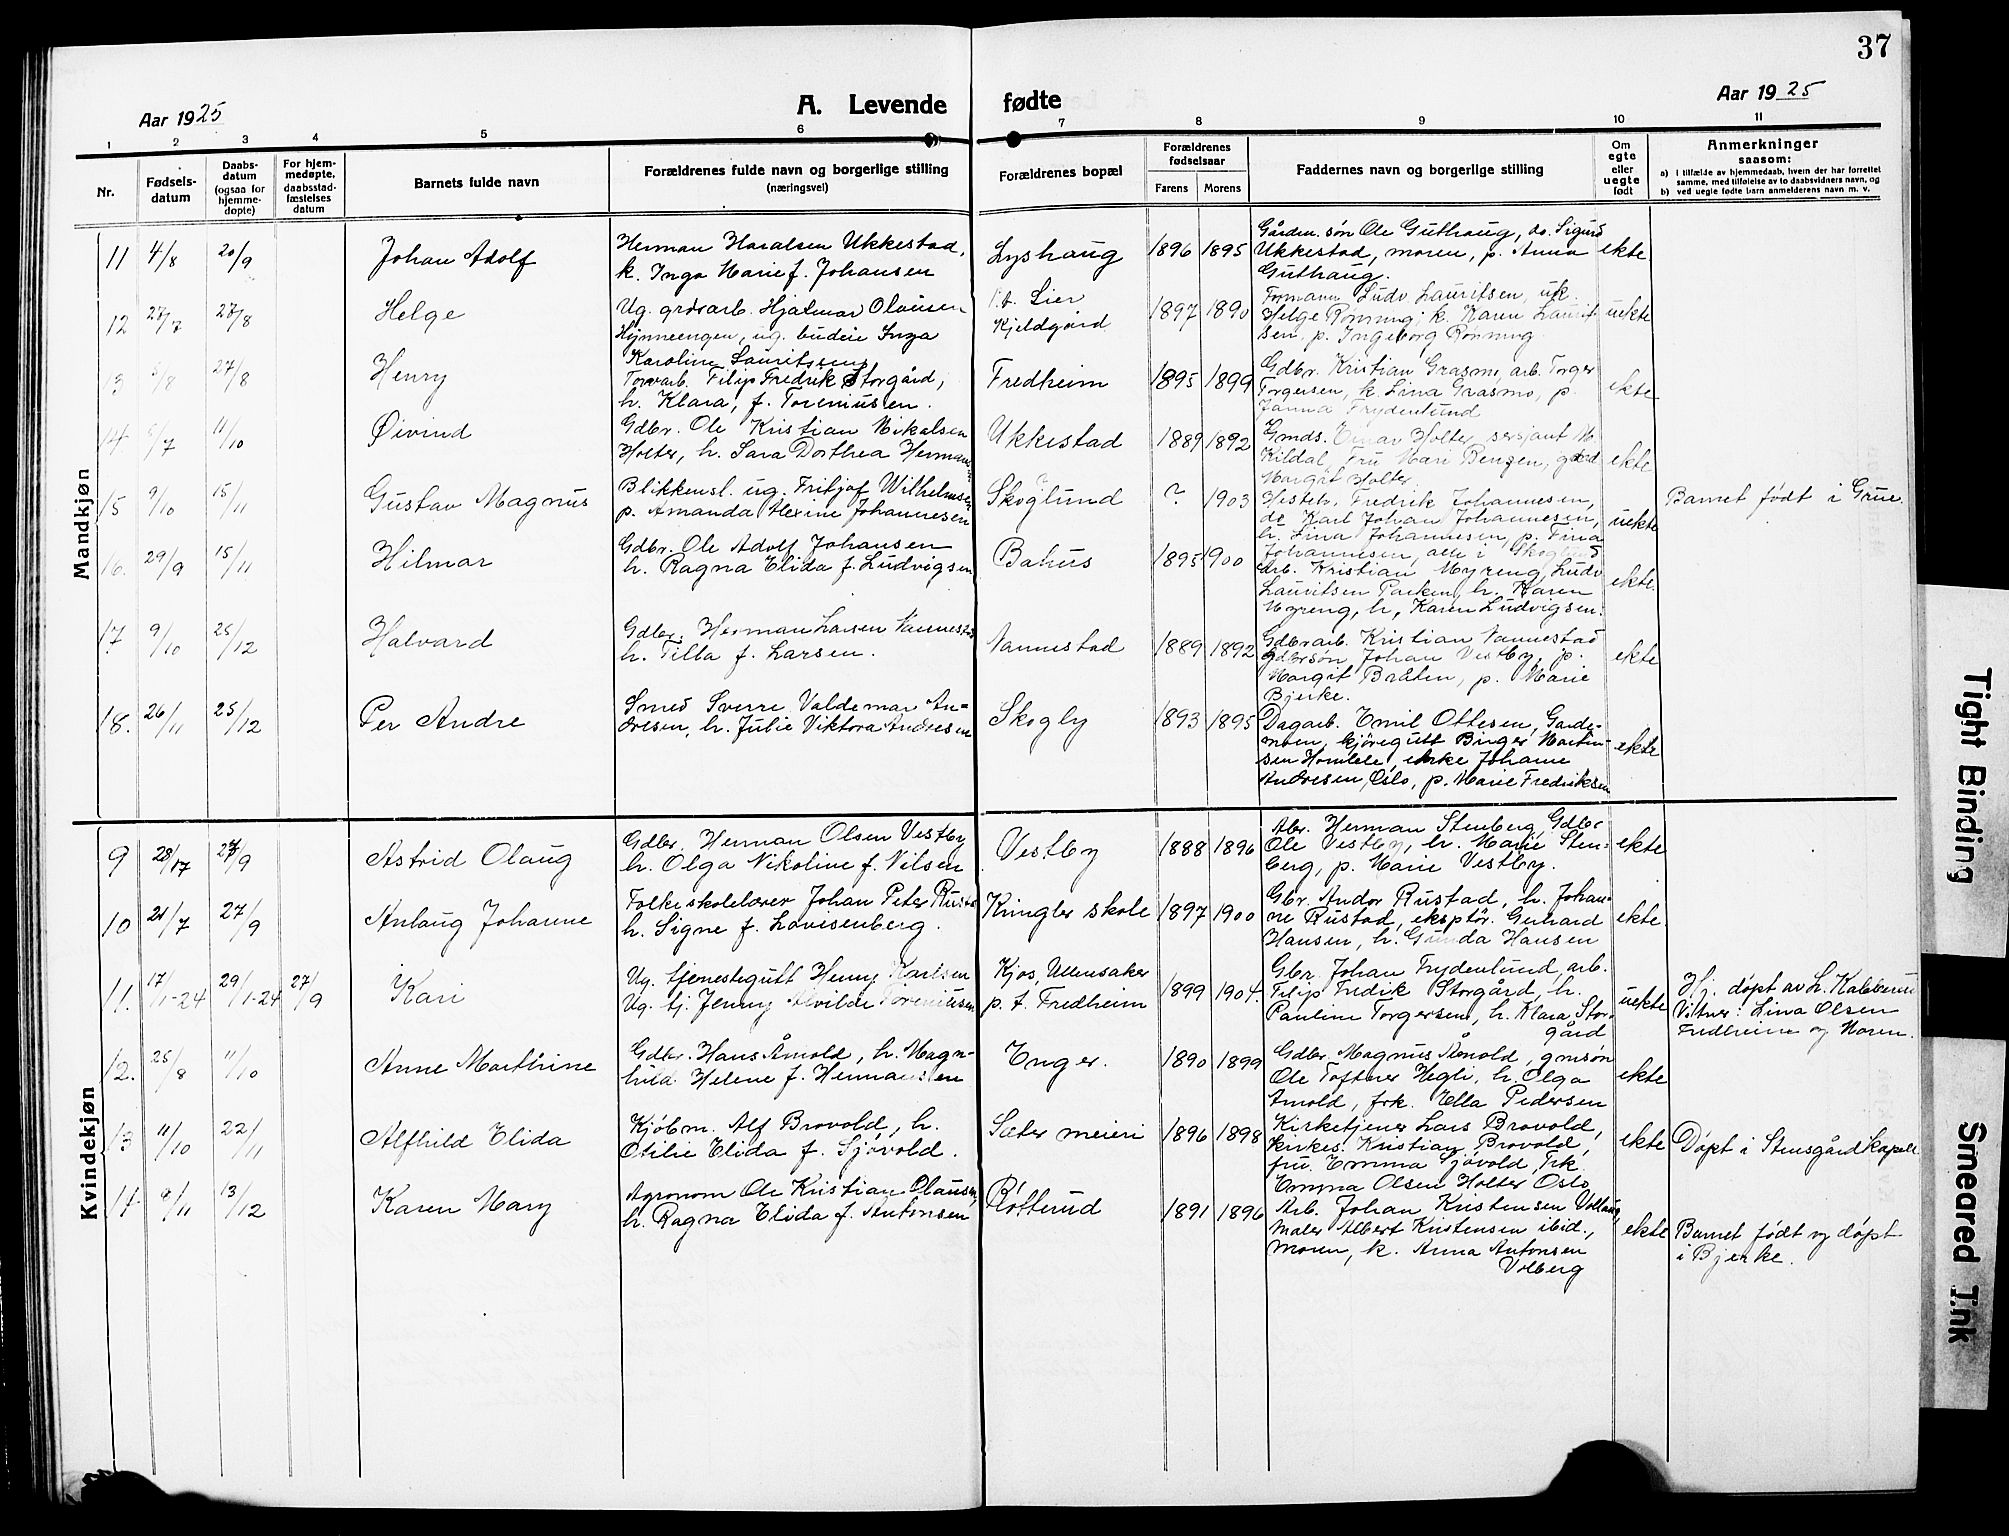 37
Aar 1925
A. Levende fødte
Aar 1925
1 2 3 4 5 6 7 8 9 10 11
Nr.
Fødsels-
datum
Daabs-
datum
(ogsaa for
hjemme-
døpte)
For hjem-
medøpte,
daabsstad-
fæstelses
datum
Barnets fulde navn
Forældrenes fulde navn og borgerlige stilling
(næringsvei)
Forældrenes bopæl
Forældrenes
fødselsaar
Farens Morens
Faddernes navn og borgerlige stilling
Om
egte
eller
uegte
født
Anmerkninger
saasom:
a) i tilfælde av hjemmedaab, hvem der har forrettet
samme, med tilføielse av to daabsvidners navn, og
b) ved uegte fødte barn anmelderens navn m. v.
Mandkjøn
11 4/8 20/9
Johan Adolf
Herman Haralsen Ukkestad,
k. Inga Marie f. Johansen
Lyshaug
1896 1895
Gården. søn Ole Guthaug, do. Sigurd
Ukkestad, moren, p. Anna
Guthaug.
ekte
12 27/7 23/8
Helge
Ug. grovarb. Hjalmar Olausen
Hynneengen, ug. budeie Inga
Karoline Lauritssen
Lier
Kjeldgård
1897 1890
Formann Ludv. Lauritsen, uk.
Helge Rønning, k. Karen Laurit
sen, p. Ingeborg Rønning
uekte
13 27/8
Henry
Torvarb. Filip Fredrik Storgård,
h. Klara, f. Toreniussen.
Fredheim
1895 1899
Gdbr. Kristian Grasmo, arb. Torger
Torgersen, k. Lina Grasmo, p.
Janna Frydenlund
ekte
14 5/7 11/10
Øivind
Gdbr. Ole Kristian Mikalsen
Holter, h. Sara Dorthea Herman
Ukkestad
1889 1892
Gmds. Einar Holter, sersjant M.
Kildal, Fru Mari Benzen,
Margit Holter.
ekte
15 9/10 15/11
Gustav Magnus
Blikkensl. ug. Fritjof Wilhelmsen
p. Amanda Alexine Johannesen
Skoglund
? 1903
Fredrik Johannesen,
do Karl Johan Johannesen,
h. Lina Johannesen, p. Fina
Johannesen, alle i Skoglund
uekte
Barnet født i Grue.
16. 29/9 15/11
Hilmar
Gdbr. Ole Adolf Johansen
h. Ragna Elida f. Ludvigsen
Bahus
1895 1900
Arb. Kristian Myreng, Ludv
Lauritsen Parken, h. Karen
Myreng, h. Karen Ludvigsen.
ekte.
17. 9/10 25/12
Halvard
Gdbr. Herman Larsen Nannestad
h. Tilla f. Larsen.
Nannestad
1889 1892
Gdbrarb. Kristian Nannestad
gdbrsøn Johan Vestby, p.
Margit Bråten, p. Marie
Bjerke.
ekte
18. 26/11 25/12
Per Andre
Smed Sverre Valdemar An=
dresen, h. Julie Viktora Andresen
Skogly
1893 1895
Dagarb. Emil Ottesen, Garde-
moen, kjøregutt Birger Martin-
sen Homlele, enke Johanne
Andresen, Oslo, p. Marie Fredriksen
ekte
Kvindekjøn
9 28/7 27/9
Astrid Olaug
Gdbr. Herman Olsen Vestby
h. Olga Nikoline f. Nilsen
Vestby
1888 1896
Herman Stenberg, Gdbr
Ole Vestby, h. Marie Sten=
berg, p. Marie Vestby.
ekte
10 21/7 27/9
Anlaug Johanne
Folkeskolelærer Johan Peter Rusta
h. Signe f. Lovisenberg.
Kringler skole
1897 1900
Gbr. Andor Rustad, h. Johan=
ne Rustad, ekspdr. Gerhard
Hansen, h. Gunda Hansen
ekte
11. 17/1-24 29/1-24 27/9
Kari
Ug. tjenestegutt Henry Karlsen
Ug. tj. Jenny Alvilde Toreniussen
Kjos, Ullensaker
p. t. Fredheim
1899 1904.
Gbr. Johan Frydenlund, arb.
Filip Fredik Storgård, h.
Pauline Torgersen, h. Klara Stor-
gård
uekte
Hj. døpt av L. Kabberud
Vitner: Lina Olsen
Fredheim og Moren.
12. 25/8 11/10
Anne Marthine
Gdbr. Hans Årnold, h. Magn-
hild Helene f. Hermansen
Enger.
1890 1899
Gdbr. Magnus Årnold, gmsøn
Ole Toftner Hegli, h. Olga
Arnold, frk. Ella Pedersen
ekte
13 11/10 22/11
Alfhild Elida
Kjøbm. Alf Brovold, h.
Otilie Elida f. Sjøvold.
Sæter meieri
1896 1898
Kirketjener Lars Brovold,
kirkes. Kristian Brovold,
fru. Emma Sjøvold, Frk.
Emma Olsen Holter Oslo
ekte
Døpt i Stensgård kapell.
14 9/11 13/12
Karen Mary
Agronom Ole Kristian Olausen,
h. Ragna Elida f. Antonsen
Røtterud
1891 1896
Arb. Johan Kristensen Vollaug,
maler Albert Kristensen ibid.,
moren, k. Anna Antonsen
Volberg
ekte
Barnet født og døpt
i Bjerke.
Tight Binding
Smeared Ink